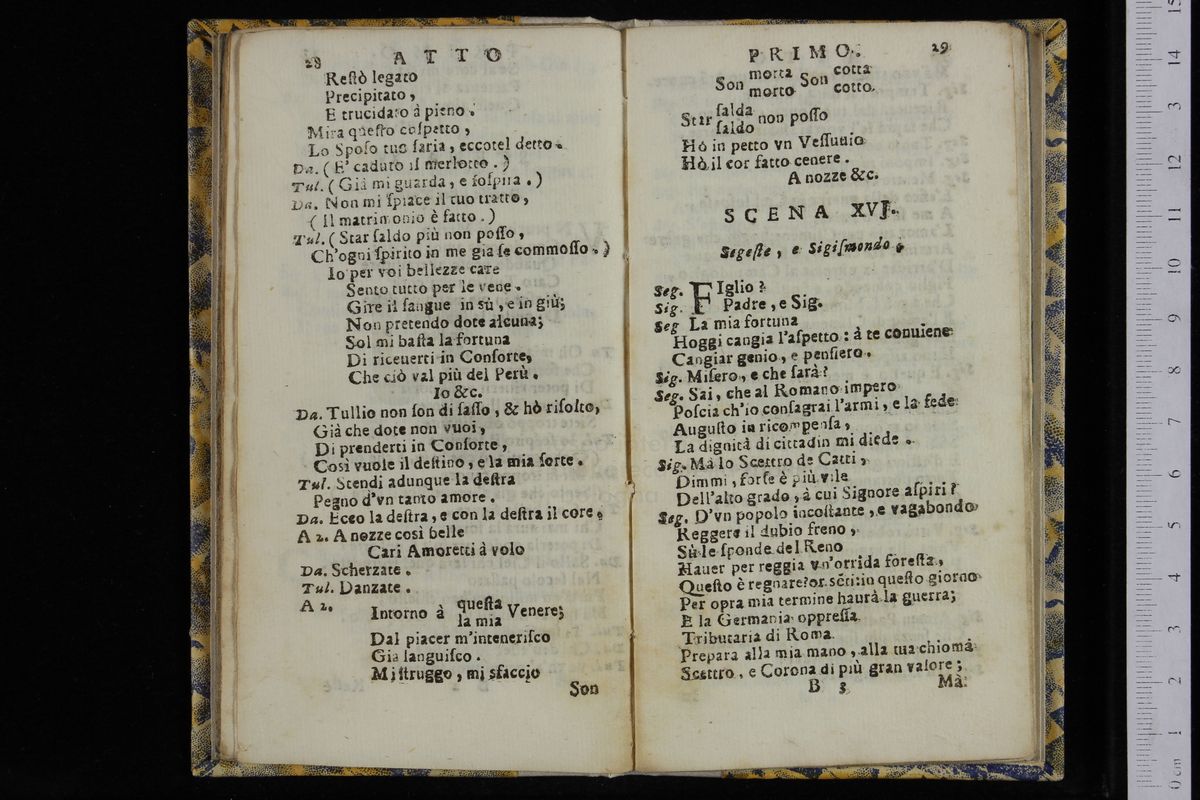 28 ATTO
Reſtò legato
Precipitato,
E trucidato à pieno.
Mira queſto coſpetto,
Lo Spoſo tuo ſaria, eccotel detto.
Da. (E' caduto il merlotto.)
Tul. (Già mi guarda, e ſoſpira.)
Da. Non mi ſpiace il tuo tratto,
(Il matrimonio è fatto.)
Tul. (Star ſaldo più non poſſo,
Ch'ogni ſpirito in me gia ſe commoſſo.)
Io per voi bellezze care
Sento tutto per le vene.
Gire il ſangue in sù, e in giù;
Non pretendo dote alcuna;
Sol mi baſta la fortuna
Di riceuerti in Conſorte,
Che ciò val più del Perù.
Io &c.
Da. Tullio non ſon di ſaſſo, & hò riſolto,
Già che dote non vuoi,
Di prenderti in Conſorte,
Così vuole il deſtino, e la mia ſorte.
Tul. Stendi adunque la deſtra
Pegno d'vn tanto amore.
Da. Ecco la deſtra, e con la deſtra il core.
A 2. A nozze così belle
Cari Amoretti à volo
Da. Scherzate.
Tul. Danzate.
A 2. Intorno à queſta Venere;
la mia
Dal piacer m'inteneriſco
Gia languiſco.
Mi ſtruggo, mi sfaccio
Son
PRIMO. 29
Son morta Son cotta
morto cotto.
Star ſalda non poſſo
ſaldo
Hò in petto vn Veſſuuio
Hò il cor fatto cenere.
A nozze &c.
SCENA XVJ.
Segeſte, e Sigiſmondo.
Seg. FIglio?
Sig. Padre, e Sig.
Seg La mia fortuna
Hoggi cangia l'aſpetto: à te conuiene
Cangiar genio, e penſiero.
Sig. Miſero, e che ſarà?
Seg. Sai, che al Romano impero
Poſcia ch'io conſagrai l'armi, e la fede
Auguſto in ricompenſa,
La dignità di cittadin mi diede.
Sig. Mà lo Scettro de Catti,
Dimmi, forſe è più vile
Dell'alto grado, à cui Signore aſpiri?
Seg. D'vn popolo incoſtante, e vagabondo
Reggere il dubio freno,
Sù le ſponde del Reno
Hauer per reggia vn'orrida foreſta,
Queſto è regnare? or sẽti: in queſto giorno
Per opra mia termine haurà la guerra;
E la Germania oppreſſa
Tributaria di Roma.
Prepara alla mia mano, alla tua chioma
Scettro, e Corona di più gran valore;
B 3 Mà